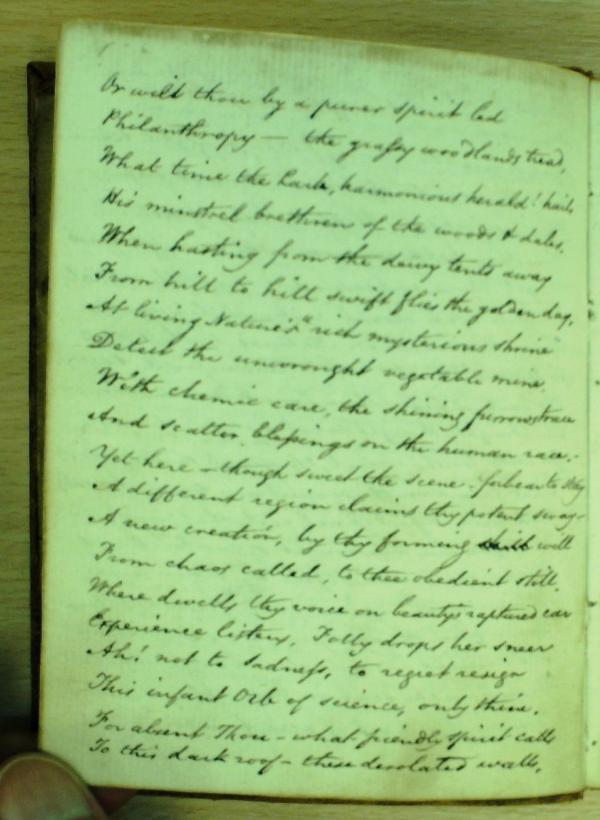 Or wilt thou by a purer spirit led
Philanthropy — the grassy woodlands tread,
What time the Lark, harmonious herald! hails
His minstrel brethren of the woods & dales.
When hasting from the dewy tents away
From hill to hill swift flies the golden day,
At living Nature's rich mysterious shrine
Detect the unwrought vegetable mine.
With chemic care, the shining furrows trace
And scatter blessings on the human race.-
Yet here - though sweet the scene - forbear to stay
A different region claims thy potent sway-
A new creation, by thy forming will
From chaos called, to thee obedient still.
Where dwells thy voice on beauty's raptured ear
Experience listens, Folly drops her sneer
Ah! not to sadness, to regret resign
This infant Orb of science, only thine.
For absent Thou - what friendly spirit calls
To this dark roof - these desolated walls,